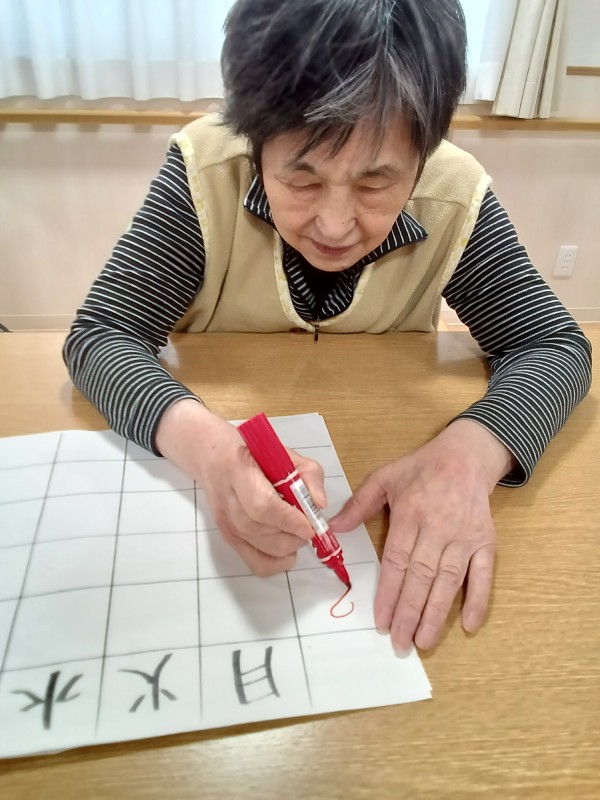 月 火 水